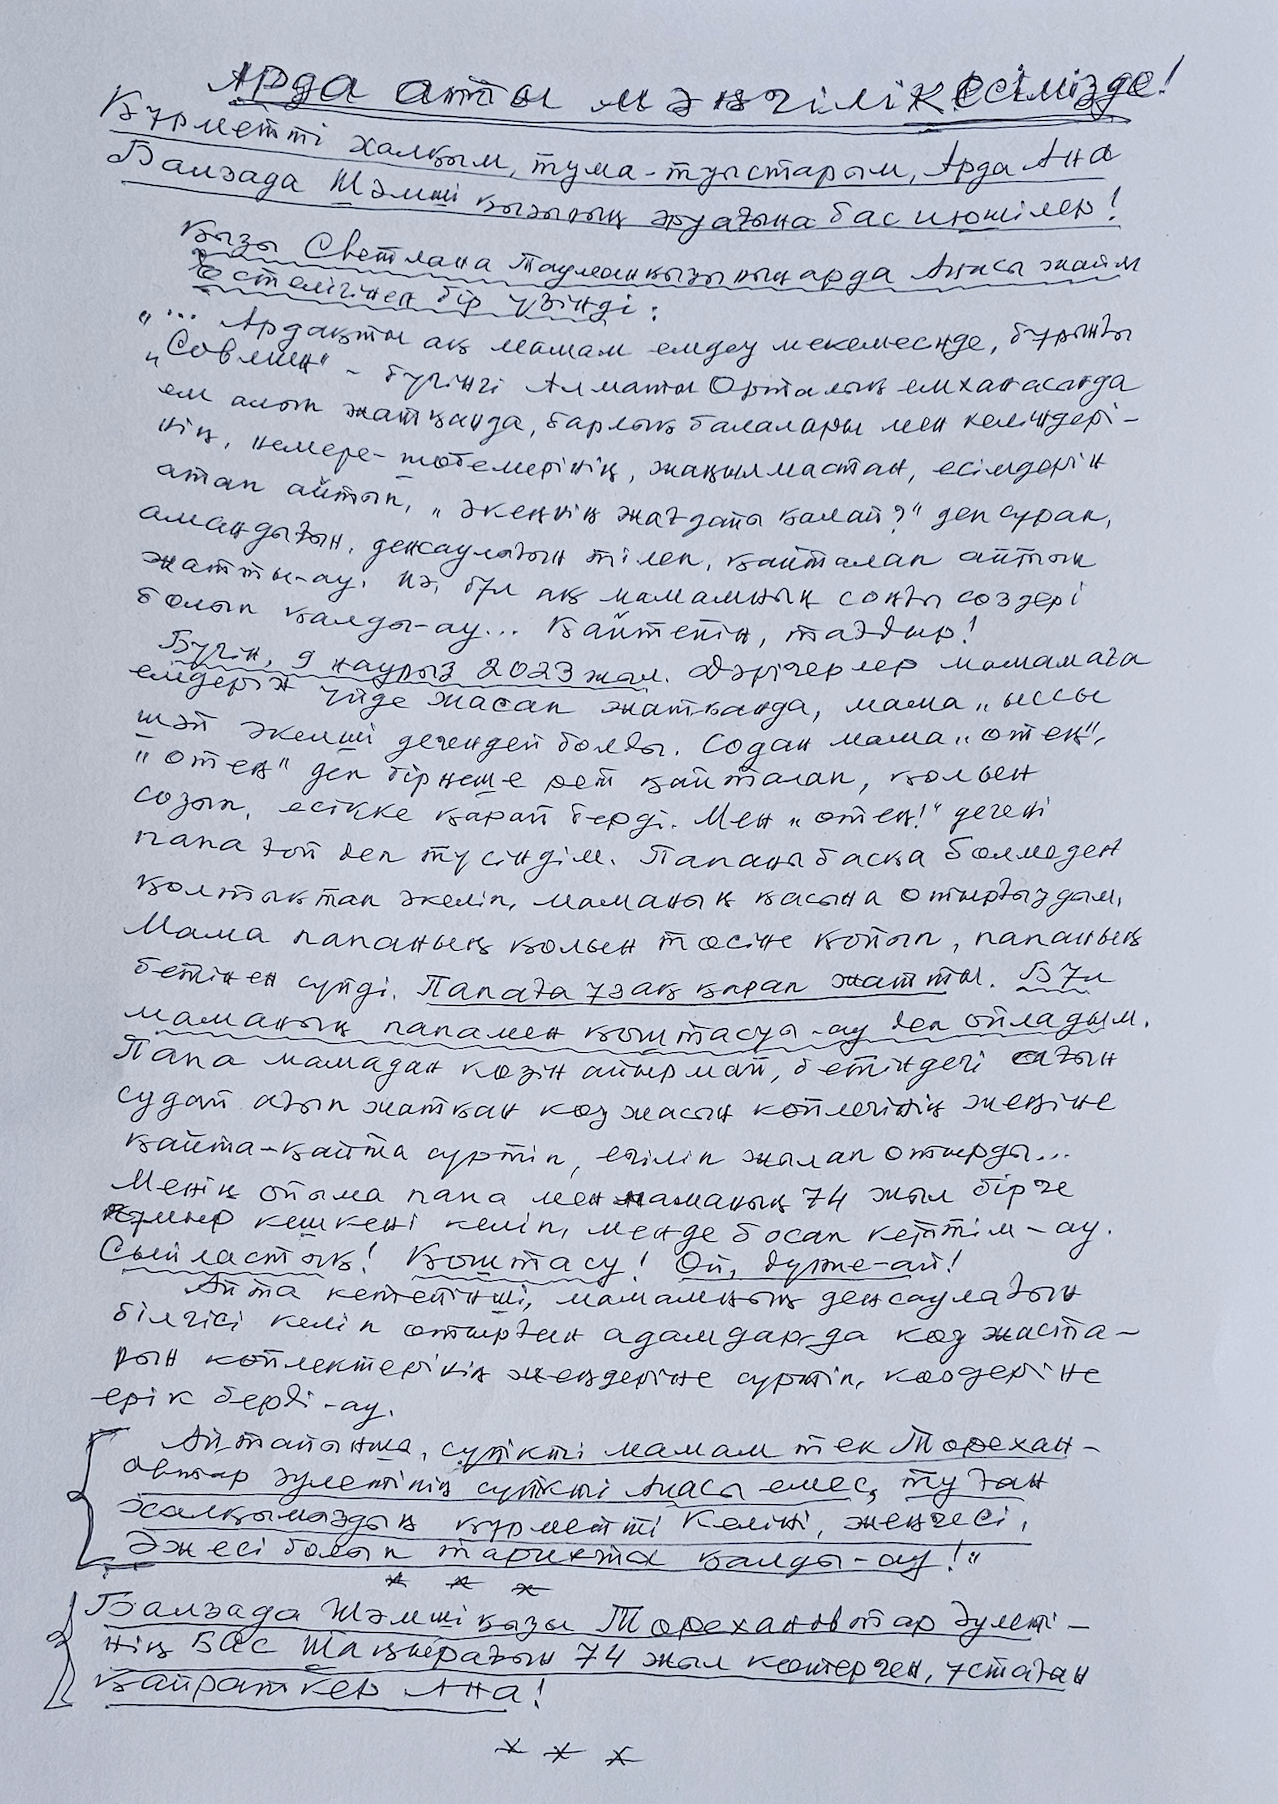 Арда атты мәңгілік есімізде!
Құрметті халқым, тума-туыстарым, Арда Ана
Балзада Шәмші қызының әруағына бас июшілер!
Қызы Светлана Тауманқызының арда Анасы жайлы
естелігінен бір үзінді:
"... Ардақты ақ мамам емдеу мекемесінде, бұрынғы
"Совмин" - бүгінгі Алматы Орталық емханасында
ем алып жатқанда, барлық балалары мен келіндері-
нің, немере-шөбемерінің, жаңылмастан, есімдерін
атап айтып, "әкеңнің жағдайы қалай?" деп сұрап,
амандығын, денсаулығын тілеп, қайталап айтып
жатты-ау. Иә, бұл ақ мамамның соңғы сөздері
болып қалды-ау... Қайтейін, тағдыр!
Бүгін, 9 наурыз 2023 жыл. Дәрігерлер мамамаға
емдерін үйде жасап жатқанда, мама "ыссы
шәй әкелші дегендей болды. Содан мама "отең",
"отең" деп бірнеше рет қайталап, қолын
созып, есікке қарай берді. Мен "отең!" дегені
папа ғой деп түсіндім. Папаны басқа бөлмеден
қолтықтап әкеліп, маманың қасына отырғыздым.
Мама папаның қолын төсіне қойып, папаның
бетінен сүйді. Папаға ұзақ қарап жатты. Бұл
маманың папамен қоштасуы-ау деп ойладым.
Папа мамадан көзін айырмай, бетіндегі ағын
судай ағып жатқан көз жасын көйлегінің жеңіне
қайта-қайта сүртіп, егіліп жылап отырды...
Менің ойыма папа мен маманың 74 жыл бірге
ғұмыр кешкені келіп, менде босап кеттім-ау.
Сыйластық! Қоштасу! Ой, дүние-ай!
Айта кетейінші, мамамның денсаулағын
білгісі келіп отырған адамдарда көз жаста-
рын көйлектерінің жеңдеріне сүртіп, көздеріне
ерік берді-ау.
Айтайынша, сүйікті мамам тек Төрехан-
овтар әулетінің сүйікті Анасы емес, туған
халқымыздың құрметті Келіні, жеңгесі,
Әжесі болып тарихта қалды-ау!"
* * *
Балзада Шәмші қызы Төрехановтар әулеті-
нің Бас Шаңырағын 74 жыл көтерген, ұстаған
Қайраткер Ана!
* * *